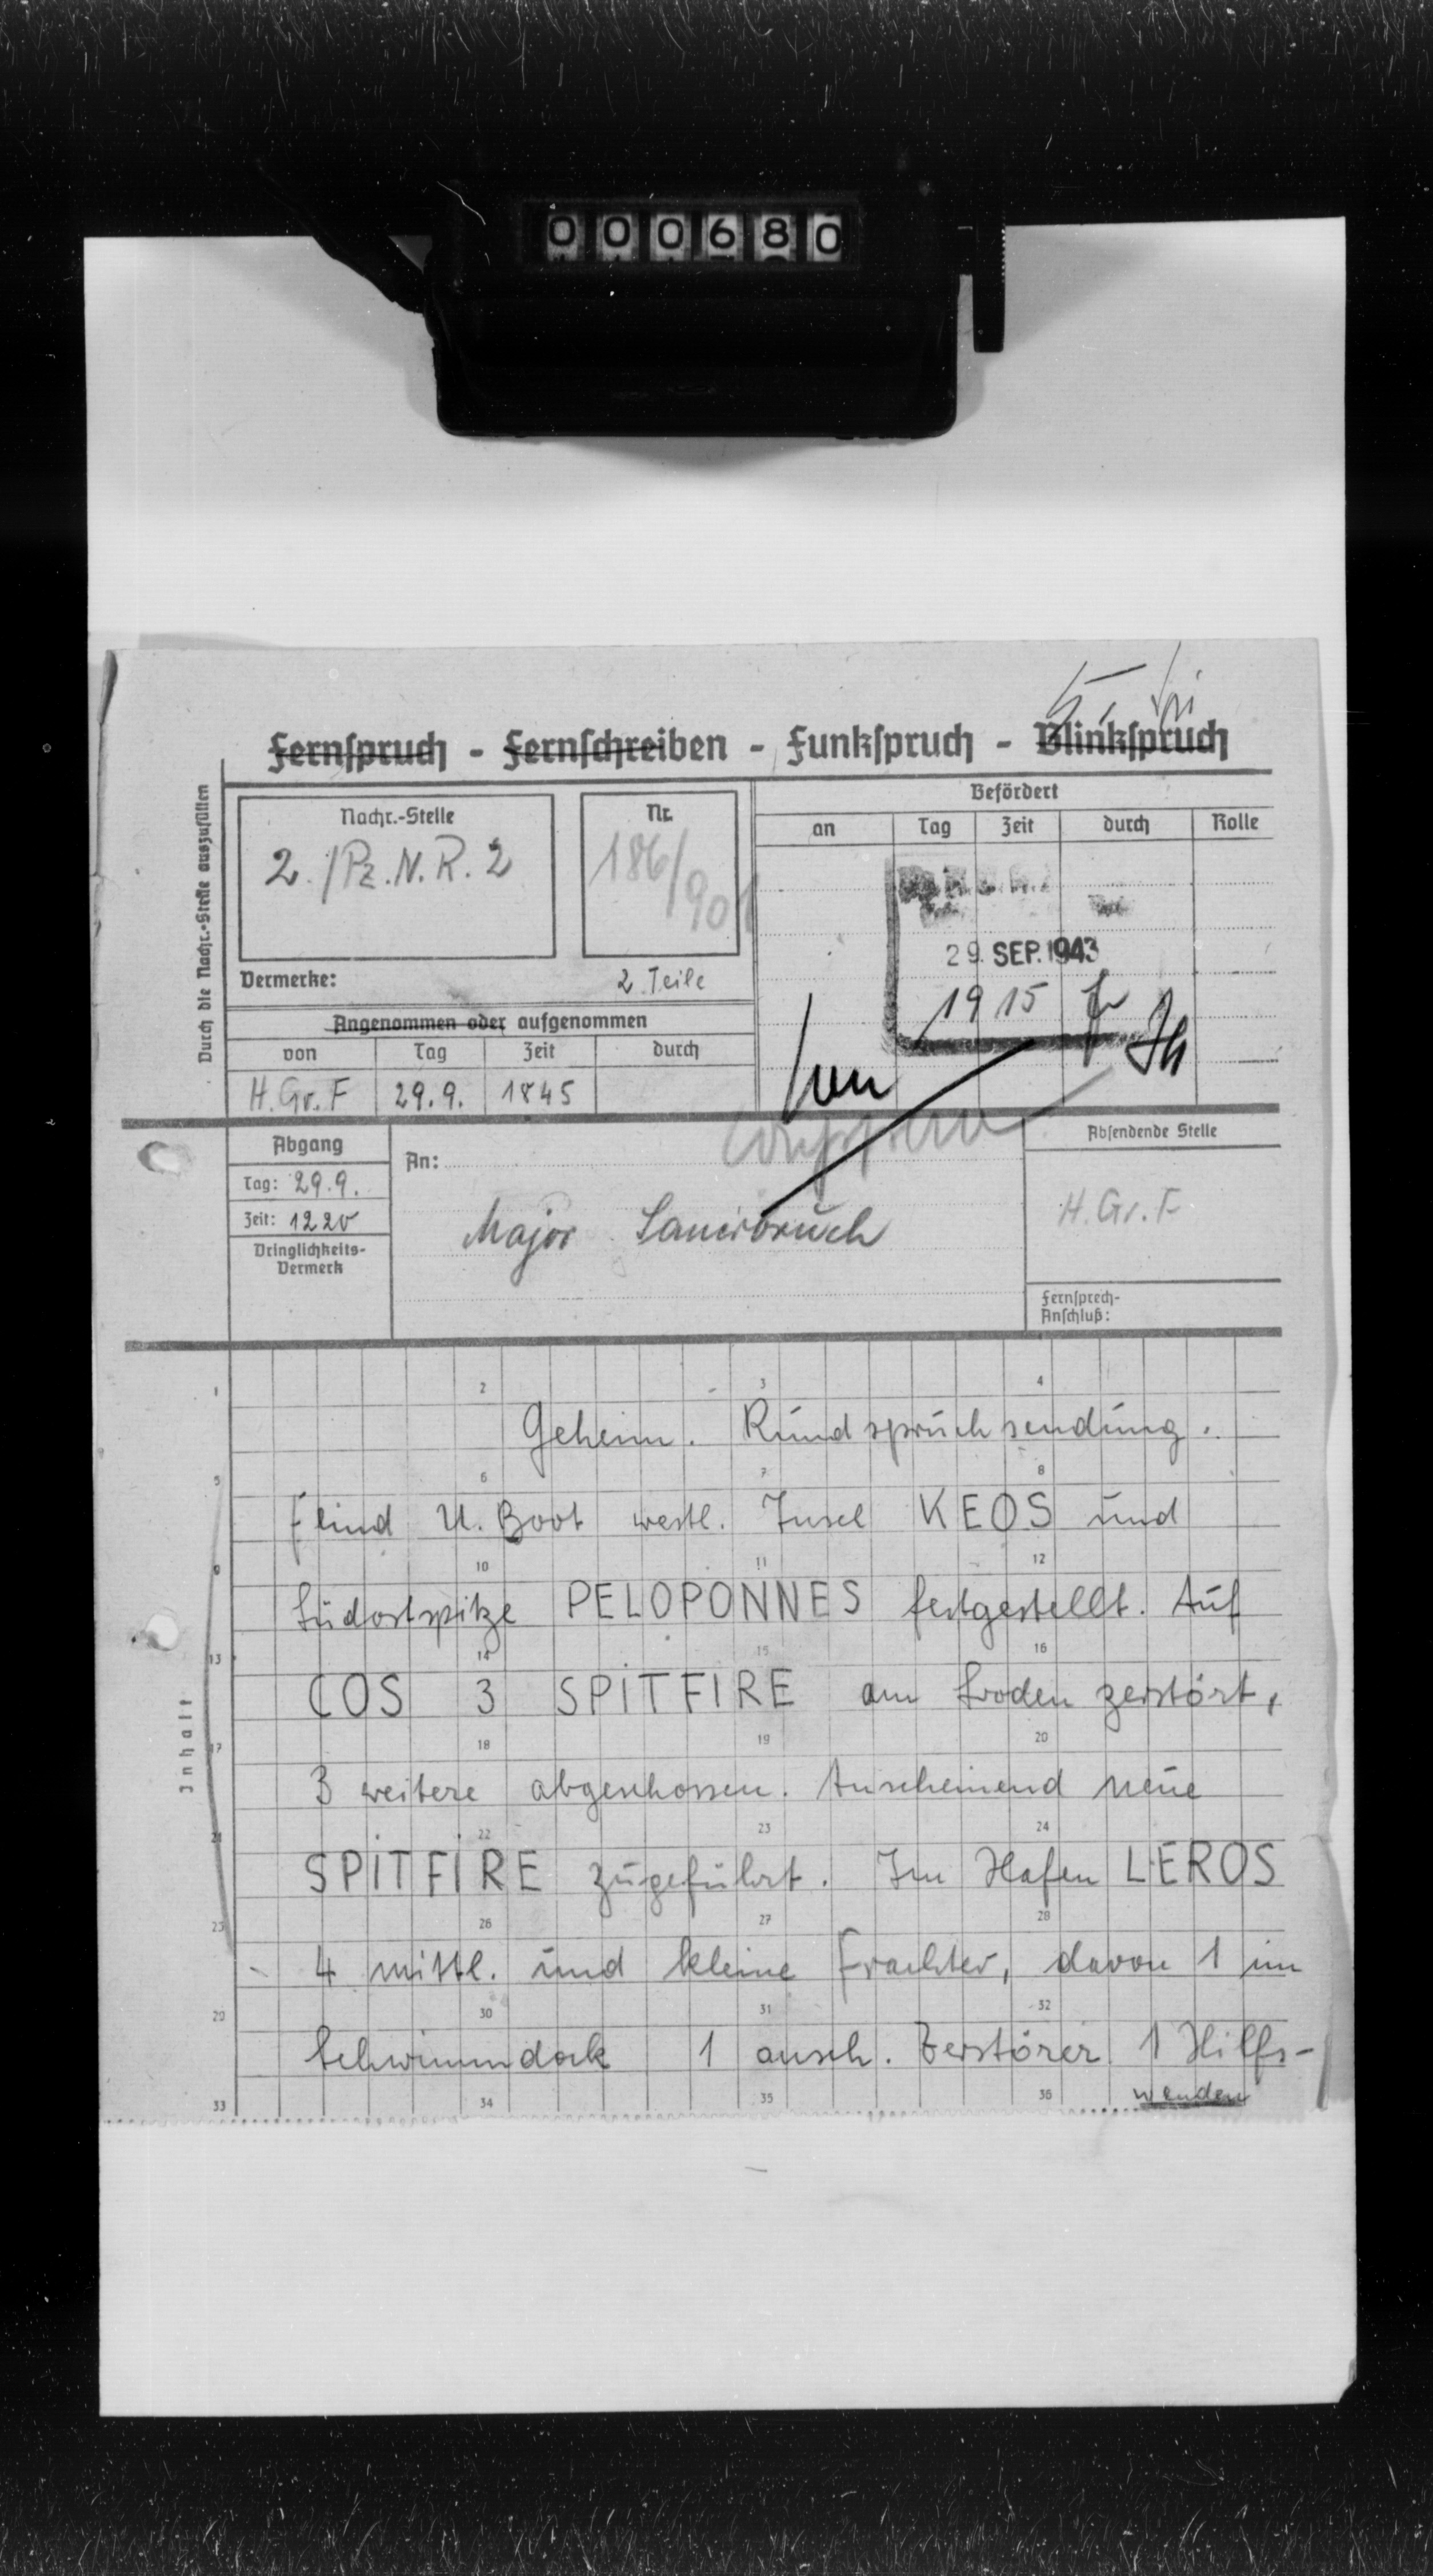 000680
Fernspruch - Fernschreiben - Funkspruch - Blinkspruch
Durch die Nachr.-Stelle auszufüllen
Nachr.-Stelle
2./Pz.N.R.2
Nr.
186/901
Befördert
an Tag Zeit durch Rolle
29. SEP. 1943
1915
Vermerke:
2 Teile
Angenommen oder aufgenommen
von Tag Zeit durch
H.Gr.F 29.9. 1845
Abgang
Tag: 29.9.
Zeit: 1220
Dringlichkeits-
Vermerk
An:
Major
Absendende Stelle
H.Gr.F
Fernsprech-
Anschluß:
Inhalt
1 2 3 4
Geheim. Rundspruchsendung.
5 6 7 8
Feind U.Boot westl. Insel KEOS und
9 10 11 12
Südostspitze PELOPONNES festgestellt. Auf
13 14 15 16
COS 3 SPITFIRE am Boden zerstört,
17 18 19 20
3 weitere abgeschossen. Anscheinend neue
21 22 23 24
SPITFIRE zugeführt. Im Hafen LEROS
25 26 27 28
4 mittl. und kleine Frachter, davon 1 im
29 30 31 32
Schwimmdock 1 ansch. Zerstörer 1 Hilfs-
33 34 35 36
wenden